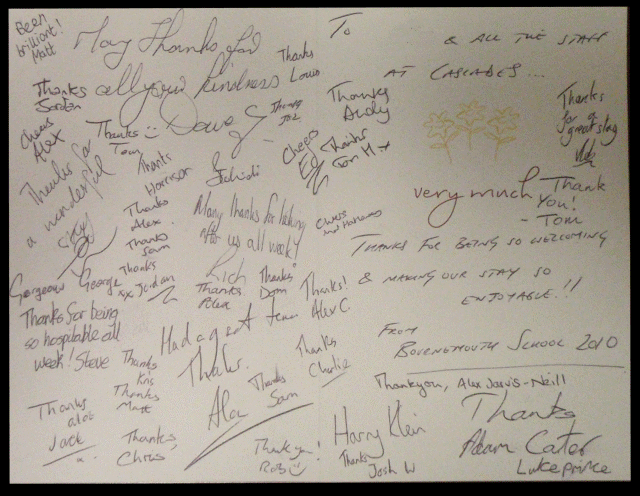 Been
brilliant!
Matt
Many thanks for
all your kindness
Dave
Thanks
Louis
Thanks
Jordan
Cheers
Alex
Thanks
Tom
Thanks for
a wonderful
stay
Thanks
Harrison
Cheers
Ed
Thanks
Sam H x
Thanks
Andy
Thanks
Alex
Thanks
Sam
Many thanks for looking
after us all week!
Rich
Cheers
Gorgeous George
Thanks
xx Jordan
Thanks
Alex
Thanks
Dom
Thanks!
Alex C
Thanks for being
so hospitable all
week! Steve
Had a great time
Thanks.
Alan
Thanks
Kris
Thanks
Matt
Thanks
Charlie
Thanks
Sam
Thanks
a lot
Jack
Thanks,
Chris
Thank you!
Rob
Harry Klein
Thanks
Josh W
To
& ALL THE STAFF
AT CASCADES...
Thanks
for a
great stay
very much
Thank
You!
- Tom
THANKS FOR BEING SO WELCOMING
& MAKING OUR STAY SO
ENJOYABLE.!!
FROM
BOURNEMOUTH SCHOOL 2010
Thankyou, Alex Jarvis-Neill
Thanks
Adam Cater
Luke Prince